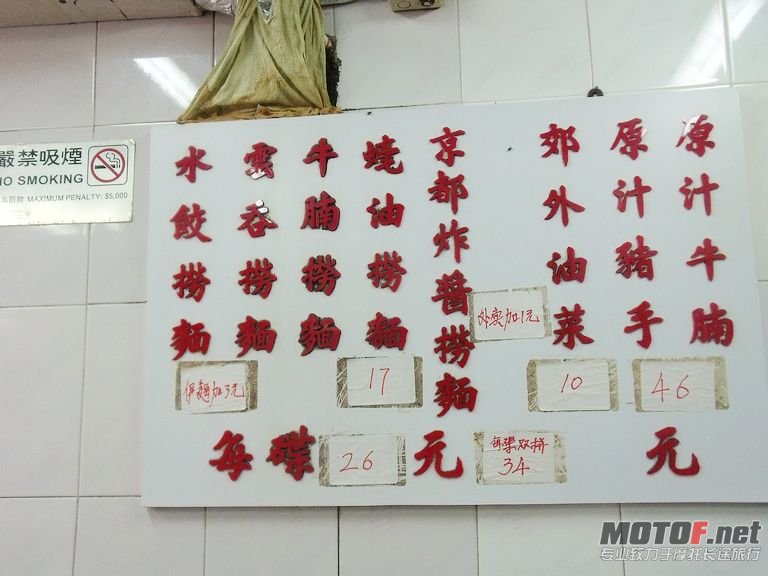 嚴禁吸煙
NO SMOKING
高罰款 MAXIMUM PENALTY: $5,000
原汁牛腩
原汁豬手
46
郊外油菜
10
外賣加1元
京都炸醬撈麵
蠔油撈麵
17
牛腩撈麵
雲吞撈麵
水餃撈麵
伊麵加3元
每碟 26 元
每碟双拼
34
元
MOTOF.net
专业致力于摩托长途旅行